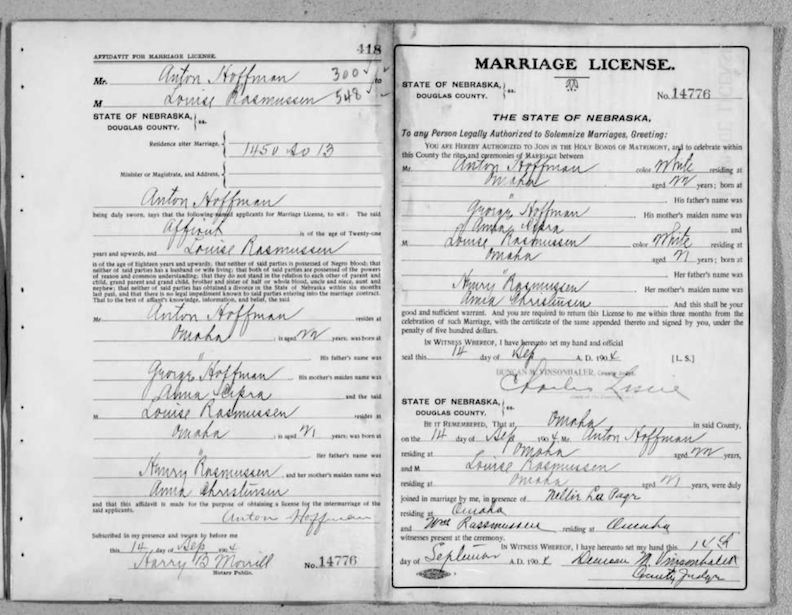 418
AFFIDAVIT FOR MARRIAGE LICENSE.
Mr. Anton Hoffman 300 to
M Louise Rasmussen 548
STATE OF NEBRASKA, } ss.
DOUGLAS COUNTY.
Residence after Marriage, 1450 So 13
Minister or Magistrate, and Address,
Anton Hoffman
being duly sworn, says that the following-named applicants for Marriage License, to wit: The said
Affiant is of the age of Twenty-one
years and upwards, and Louise Rasmussen
is of the age of eighteen years and upwards, that neither of said parties is possessed of Negro blood; that
neither of said parties has a husband or wife living; that both of said parties are possessed of the powers
of reason and common understanding; that they do not stand in the relation to each other of parent and
child, grand parent and grand child, brother and sister of half or whole blood, uncle and niece, aunt and
nephew; that neither of said parties has obtained a divorce in the State of Nebraska within six months
last past, and that there is no legal impediment known to said parties entering into the marriage contract.
That to the best of affiant's knowledge, information, and belief, the said
Mr Anton Hoffman resides at
Omaha ; is aged 22 years; was born at
" His father's name was
George Hoffman His mother's maiden name was
Anna and the said
M Louise Rasmussen resides at
Omaha ; is aged 21 years; was born at
" Her father's name was
Henry Rasmussen, and her mother's maiden name was
Anna Christensen
and that this affidavit is made for the purpose of obtaining a license for the intermarriage of the
said applicants.
Anton Hoffman
Subscribed in my presence and sworn to before me
this 14 day of Sep 1904
Harry B Morrill No. 14776
Notary Public.
MARRIAGE LICENSE.
STATE OF NEBRASKA, } ss.
DOUGLAS COUNTY.
No. 14776
THE STATE OF NEBRASKA,
To any Person Legally Authorized to Solemnize Marriages, Greeting:
YOU ARE HEREBY AUTHORIZED TO JOIN IN THE HOLY BONDS OF MATRIMONY, and to celebrate within
this County the rites and ceremonies of MARRIAGE between
Mr Anton Hoffman color White residing at
Omaha aged 22 years; born at
" His father's name was
George Hoffman His mother's maiden name was
Anna and
M Louise Rasmussen color White residing at
Omaha aged 21 years; born at
" Her father's name was
Henry Rasmussen Her mother's maiden name was
Anna Christensen And this shall be your
good and sufficient warrant. And you are required to return this License to me within three months from the
celebration of such Marriage, with the certificate of the same appended thereto and signed by you, under the
penalty of five hundred dollars.
IN WITNESS WHEREOF, I have hereunto set my hand and official
seal this 14 day of Sep A. D. 1904 [L. S.]
DUNCAN M. VINSONHALER, County Judge.
Charles
STATE OF NEBRASKA, } ss.
DOUGLAS COUNTY.
BE IT REMEMBERED, That at Omaha in said County,
on the 14 day of Sep 1904 Mr. Anton Hoffman
residing at Omaha aged 22 years,
and M Louise Rasmussen
residing at Omaha aged 21 years, were duly
joined in marriage by me, in presence of Nellie
residing at Omaha
and Wm Rassmussen residing at Omaha
witnesses present at the ceremony.
IN WITNESS WHEREOF, I have hereunto set my hand this 14th
day of September A. D. 1904 Duncan M Vinsonhaler
County Judge